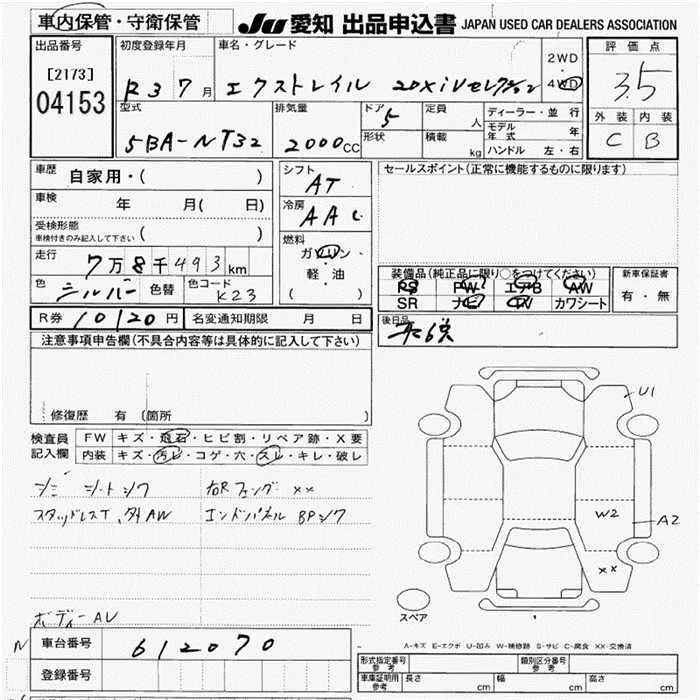 車内保管・守衛保管 JU 愛知 出品申込書 JAPAN USED CAR DEALERS ASSOCIATION
出品番号 初度登録年月 車名・グレード 2WD 評価点
[2173] R3 7月 エクストレイル 20Xi 4WD 3.5
04153
型式 排気量 ドア 5 定員 人 ディーラー・並行 外装 内装
5BA-NT32 2000CC 形状 積載 kg モデル年式 年 C B
ハンドル 左・右
車歴 自家用・( ) シフト AT セールスポイント(正常に機能するものに限ります)
車検 年 月( 日) 冷房 AAC
受検形態
車検付きのみ記入して下さい ( ) 燃料
走行 7万8千493km ガソリン
軽・油
( )
装備品(純正品に限り○をつけてください) 新車保証書
色 シルバー 色替 色コード K23 PS PW エアB AW 有・無
SR ナビ TV カワシート
R券 10120円 名変通知期限 月 日 後日品
注意事項申告欄(不具合内容等は具体的に記入して下さい)
修復歴 有 (箇所 )
検査員 FW キズ・飛石・ヒビ割・リペア跡・X要
記入欄 内装 キズ・汚レ・コゲ・穴・スレ・キレ・破レ
シミ シートシワ 右Rフェンダ ××
スタッドレスT、外AW エンドパネル BPシワ
U1
W2
A2
××
スペア
ボディーAU
A-キズ E-エクボ U-凹み W-補修跡 S-サビ C-腐食 XX-交換済
車台番号 612070
登録番号
形式指定番号 参考 類別区分番号 参考
車庫証明用 参考 長さ cm 幅 cm 高さ cm